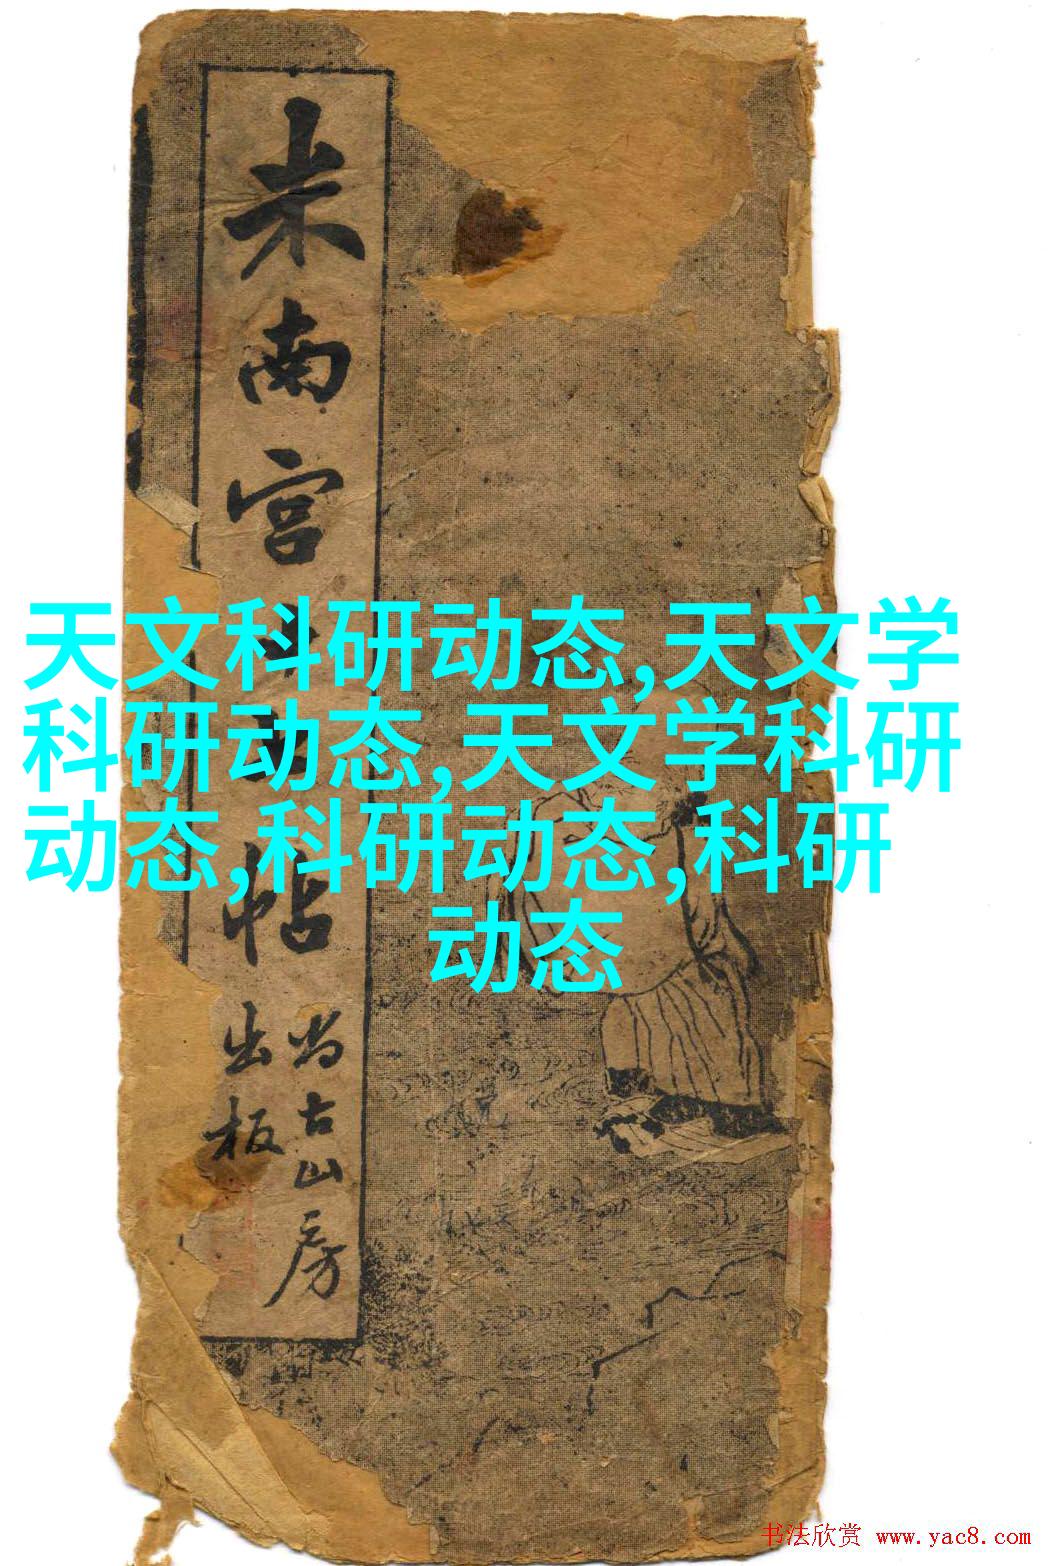 米南宫帖
尚古山房
出板
天文科研动态,天文学
科研动态,天文学科研
动态,科研动态,科研
动态
书法欣赏 www.yac8.com